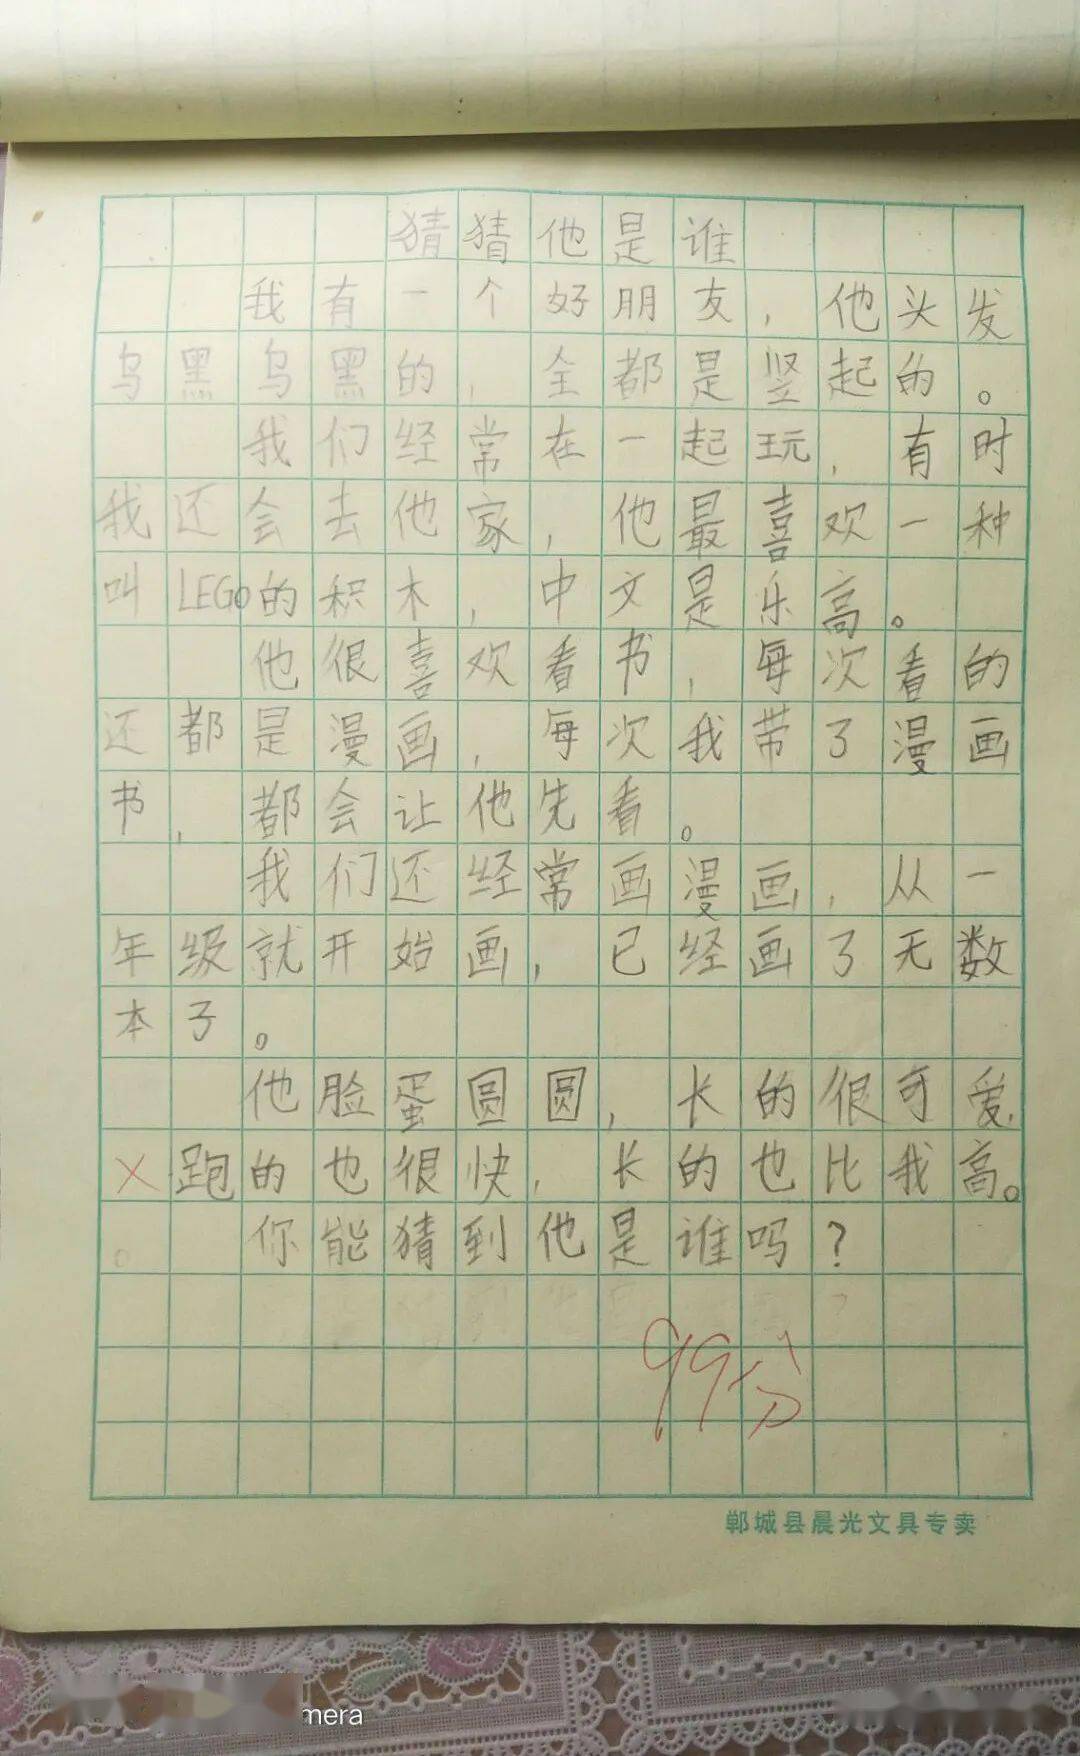 猜猜他是谁
我有一个好朋友，他头发
乌黑乌黑的，全都是竖起的。
我们经常在一起玩，有时
我还会去他家，他最喜欢一种
叫LEGO的积木，中文是乐高。
他很喜欢看书，每次看的
还都是漫画，每次我带了漫画
书，都会让他先看。
我们还经常画漫画，从一
年级就开始画，已经画了无数
本子。
他脸蛋圆圆，长的很可爱，
X跑的也很快，长的也比我高。
你能猜到他是谁吗？
99分
郸城县晨光文具专卖
mera